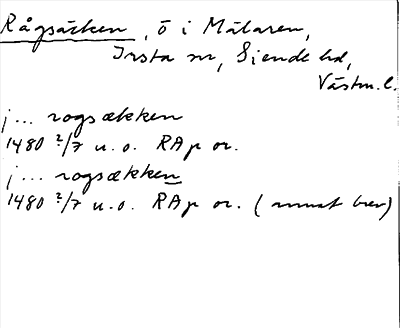 Rågsäcken, ö i Mälaren,
Irsta sn, Siende hd,
Västm. l.
j... rogsækken
1480 2/7 u.o. RAp or.
j... rogsækken
1480 2/7 u.o. RAp or. (annat brev)